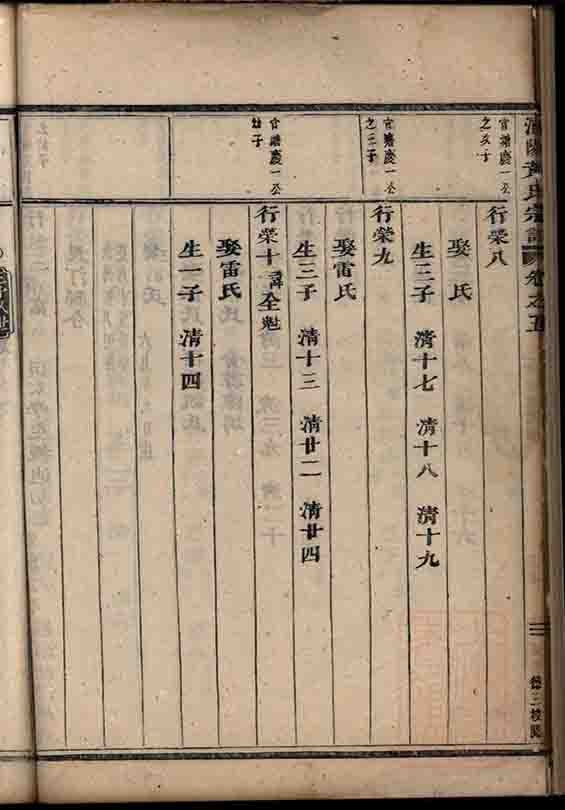 黃氏宗譜 卷之五
官塘慶一公
之次子
行榮八
娶 氏
生三子 清十七 清十八 清十九
官塘慶一公
之三子
行榮九
娶雷氏
生三子 清十三 清廿二 清廿四
官塘慶一公
幼子
行榮十一諱全魁
娶雷氏
生一子 清十四